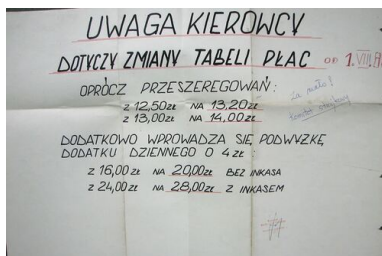 UWAGA KIEROWCY
DOTYCZY ZMIANY TABELI PŁAC OD 1.VIII.
OPRÓCZ PRZESZEREGOWAŃ:
z 12,50zł NA 13,20zł
z 13,00zł NA 14,00zł
za mało!
DODATKOWO WPROWADZA SIĘ PODWYŻKĘ
DODATKU DZIENNEGO O 4 zł
z 16,00zł NA 20,00zł BEZ INKASA
z 24,00zł NA 28,00zł Z INKASEM